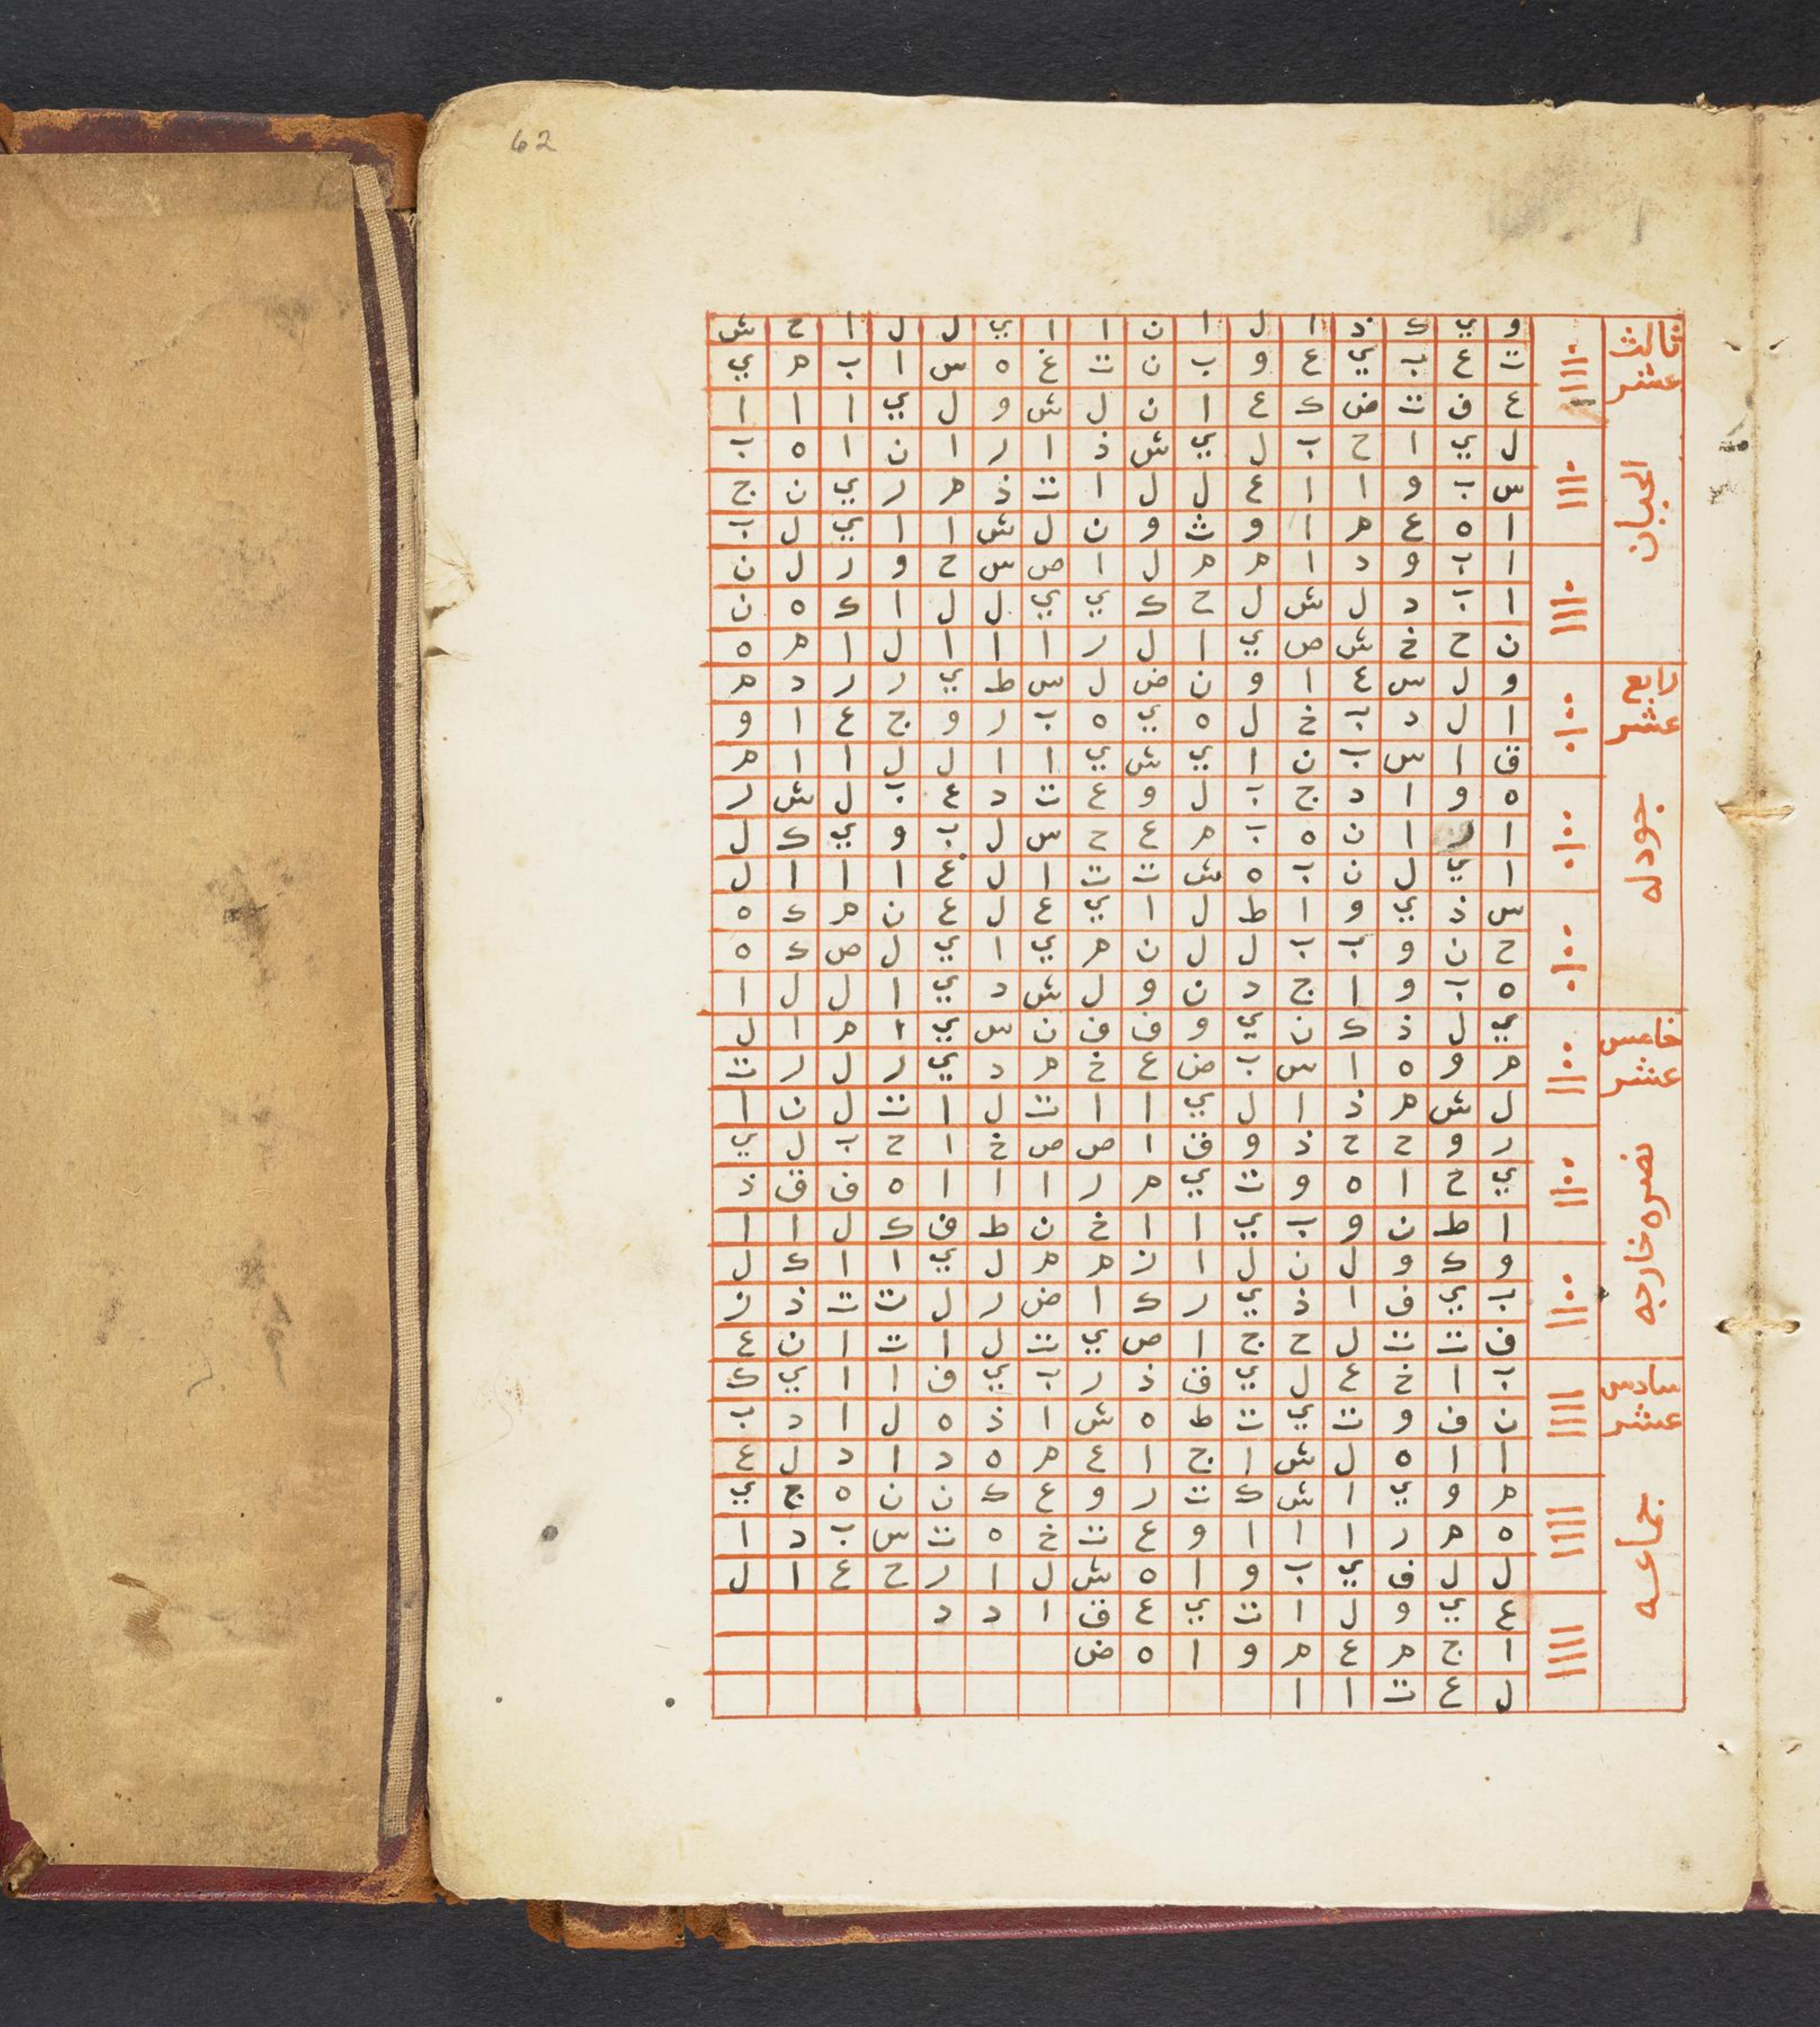 62
ثالث
عشر
الحيان
و ي ك ذ ا ل ا ن ا ا ي ل ل ا ح ش
ت ع ب ي ع و ب ن ت غ ه س ا ب م ي
ع ف ت ض ك ع ا ن ل ش و ل ي ا ا ا
ل ي ا ح ب ل ي ش ذ ا ر ا ن ا ه ب
س ب و ا ا ع ل ل ا ت ذ م ر ي ن ج
ا ه ع م ا و ث و ن ل ش ا ا ي ل ب
ا ب و د ا م م ل ا ص س ح و ر ل ن
ا ب د ل ش ل ح ك ي ي ل ل ا ك ه ن
ن ح خ ش ص ي ا ل ر ا ا ا ل ا م ه
رابع
عشر
جودله
و ل س ع ا و ن ض ل س ط ي ر ر د م
ا ل د ب خ ل ه ي ه ب ر و ج ع ا و
ق ا س ب ن ا ي ش ي ا ا ل ل ا ا م
ه و ا د ج ب ل و ع ت د ع ب ل ش ر
ا ر ا ن ه ب م ع ح س ل ب و ي ك ل
ا ي ل ن ب ه ش ت ت ا ل غ ا ا ا ل
س ذ ي و ا ط ل ا ي ع ل ع ن م ك ه
ح ن و ب ب ل ل ن م ي ا ي ل ص ك ه
ه ب و ا ج د ن و ل ش د ي ا ل ل ا
خامس
عشر
نصره خارجه
ي ل ذ ك ن ي و ف ف ن س ي ا م ا ل
م و ه ا س ب ض ع خ م د ي ر ل ر ت
ل ش م ذ ا ل ي ا ا ت ل ا ت ل ن ا
ر و ح ح ذ و ق ا ص ص خ ا ح ب ل ي
ي ح ا ه و ت ي م ر ا ا ا ه ف ق ذ
ا ط ن و ب ي ا ا خ ن ط ف ك ل ا ا
و ك و ل ن ل ا ن م م ل ي ا ا ك ل
ب ي ف ا ذ ي ر ك ا ض ر ل ت ت ذ ن
ف ت ت ل ح ج ا ص ي ت ل ا ت ا ن ع
سادس
عشر
جماعه
ب ا خ ع ل ي ق ذ ر ب ي ف ا ا ي ك
ن ف و ت ي ت ط ه ش ا ذ ه ل ا د ب
ا ا ه ل ش ا ج ا ع م ه د ا د ل ع
م و ي ا ش ك ت ر و ع ك ن ن ه ج ي
ه م ر ا ا ا و ع ت خ ه ت س ب د ا
ل ل ف ي ب و ا ه ش ل ا ر ح ع ا ل
ع ي و ل ا ت ي ع ق ا د د
ا ج م ع م و ا ه ض
ل ع ت ا ا